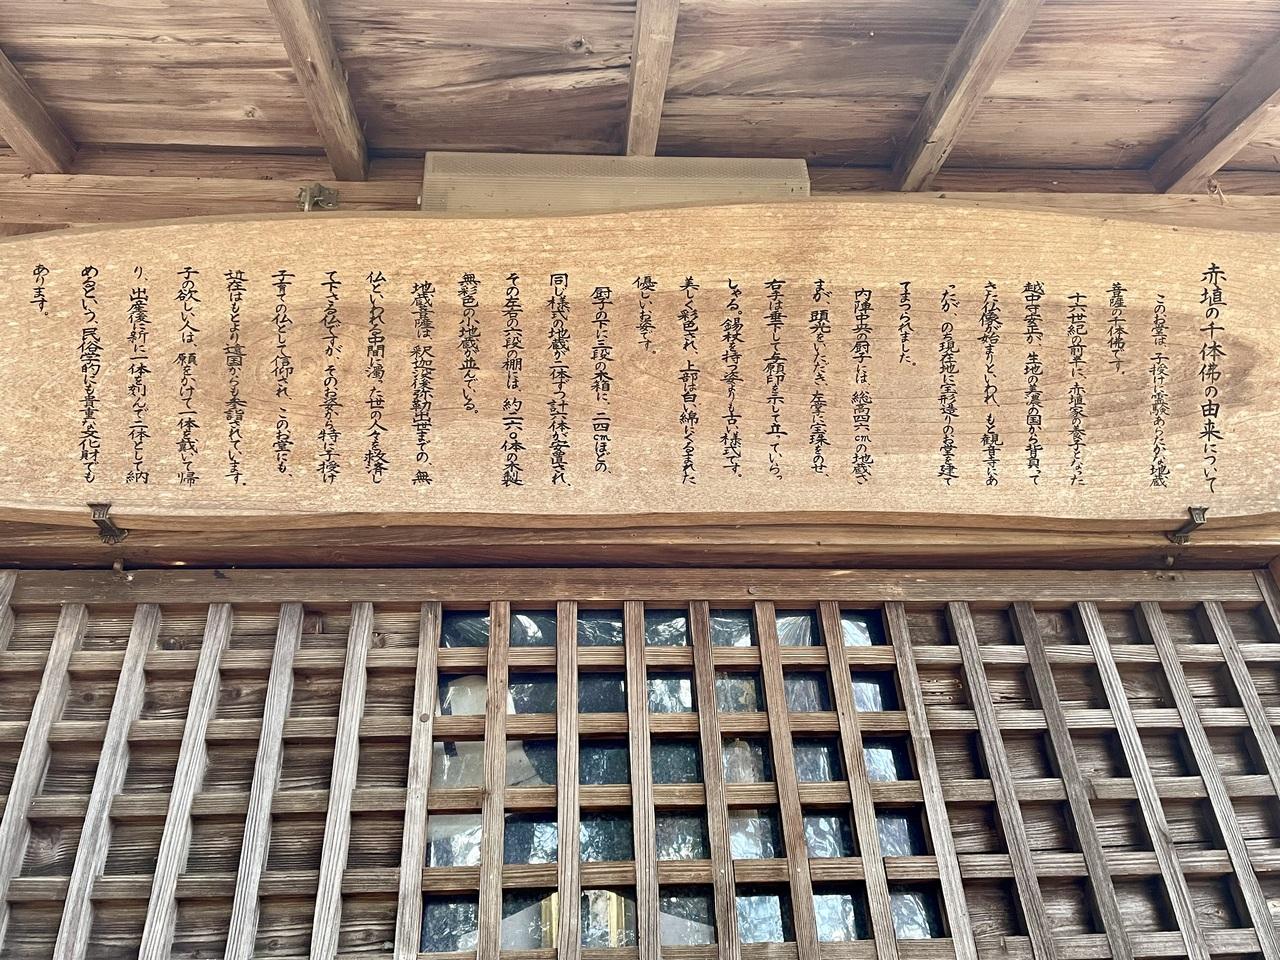 赤埴の千体佛の由来について
このお堂は、子授けに霊験あらたかな地蔵
菩薩の千体佛です。
十七世紀の前半に、赤埴家の養子となった
越中守
が、生地の美濃の国から背負って
きた仏像が始まりといわれ、もと観音寺にあ
ったが、のち現在地に宝形造りのお堂を建て
てまつられました。
内陣中央の厨子には、総高四六cmの地蔵さ
まが、頭光をいただき、左掌に宝珠をのせ、
右手は垂下して与願印を示して立っていらっ
しゃる。錫杖を持つ姿よりも古い様式です。
美しく彩色され、上部は白い綿にくるまれた
優しいお姿です。
厨子の下に三段の木箱に、二四cmほどの、
同じ様式の地蔵が二体ずつ計六体が安置され、
その左右の六段の棚は、約二六〇体の木製
無彩色の小地蔵が並んでいる。
地蔵菩薩は、釈迦没後弥勒出世までの、無
仏といわれる中間に濁った世の人々を救済し
て下さる仏ですが、そのお姿から特に子授け
子育ての仏として信仰され、このお堂にも
近在はもとより遠国からも参詣されています。
子の欲しい人は、願をかけて一体を戴いて帰
り、出産後に新に一体を刻んで二体として納
めるという、民俗学的にも貴重な文化財でも
あります。